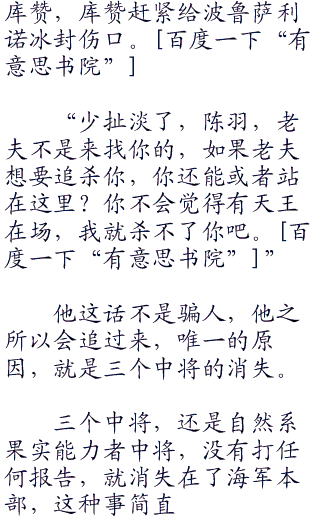 库赞，库赞赶紧给波鲁萨利
诺冰封伤口。[百度一下“有
意思书院”]
“少扯淡了，陈羽，老
夫不是来找你的，如果老夫
想要追杀你，你还能或者站
在这里？你不会觉得有天王
在场，我就杀不了你吧。[百
度一下“有意思书院”]”
他这话不是骗人，他之
所以会追过来，唯一的原
因，就是三个中将的消失。
三个中将，还是自然系
果实能力者中将，没有打任
何报告，就消失在了海军本
部，这种事简直